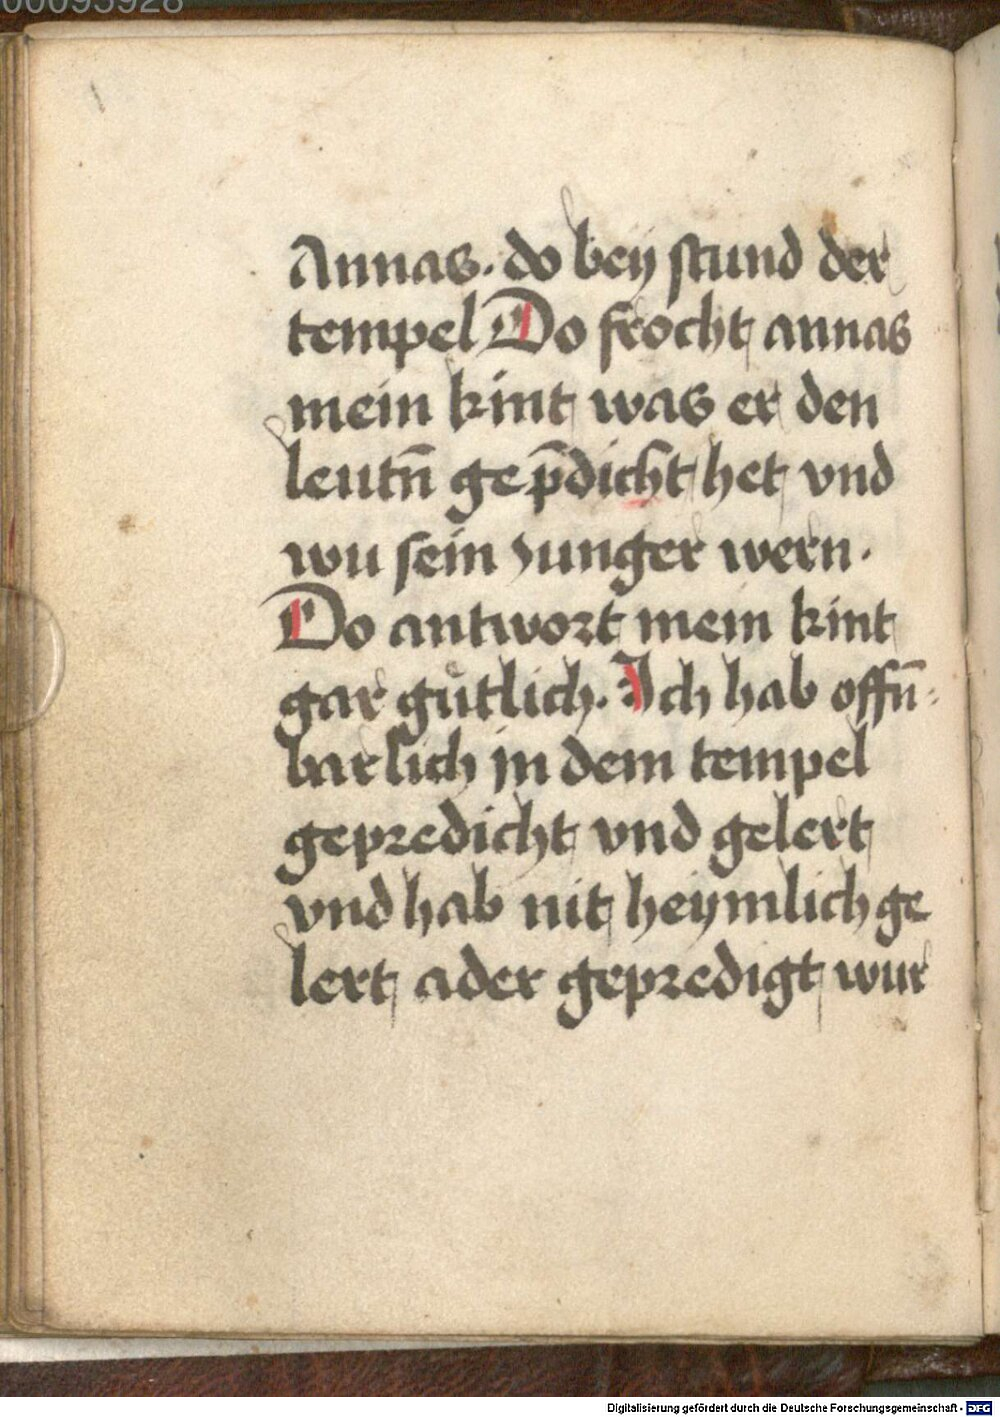 00095928
Annas. do bey stund der
tempel Do frocht annas
mein kint was er den
leutn̄ gep̄dicht het vnd
wu sein Junger wern.
Do antwort mein kint
gar gůtlich. Ich hab offn̄-
barlich in dem tempel
gepredicht vnd gelert
vnd hab nit heymlich ge
lert ader gepredigt wur
Digitalisierung gefördert durch die Deutsche Forschungsgemeinschaft - DFG